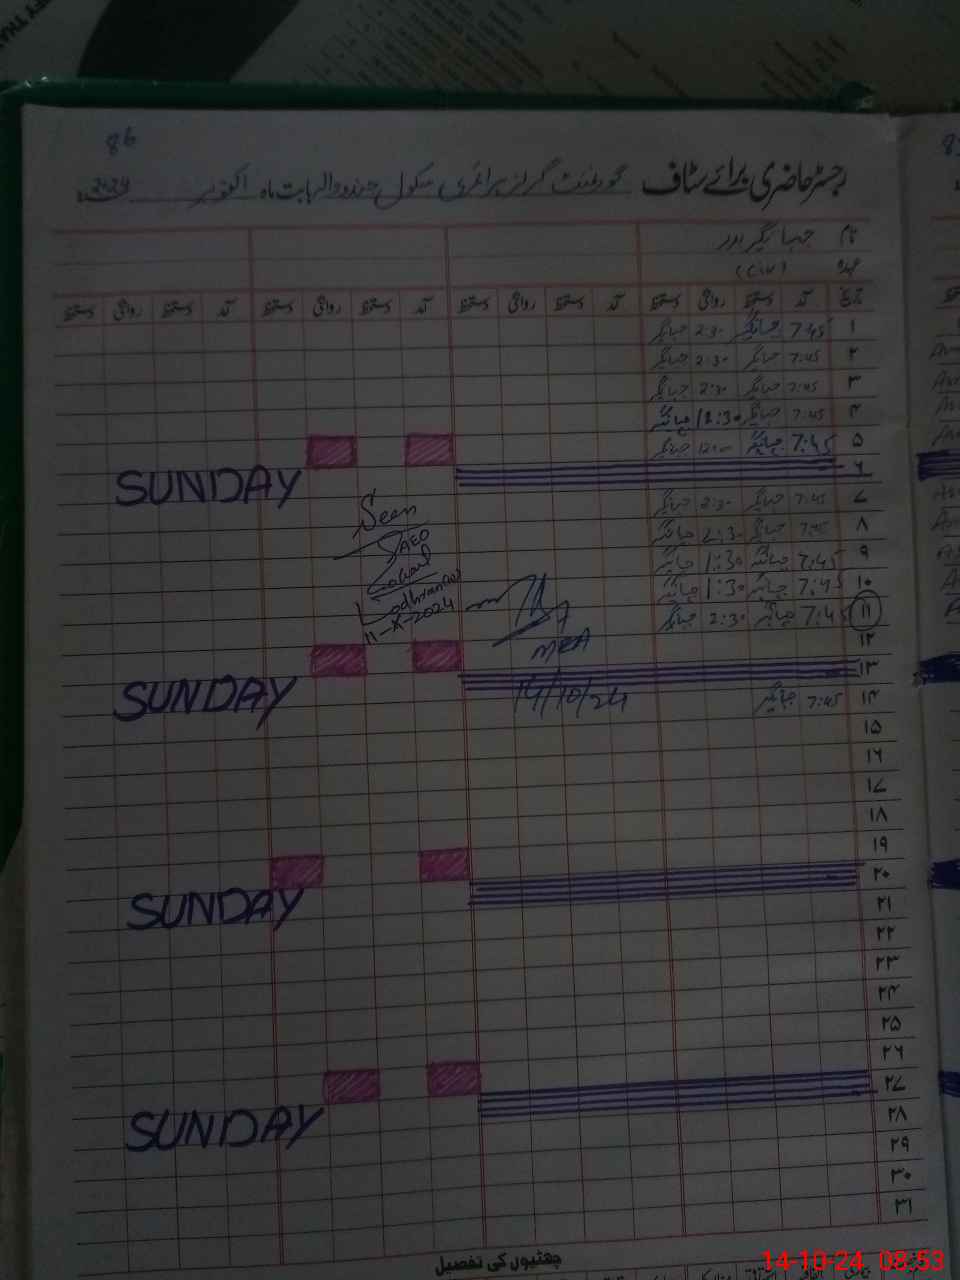 86
رجسٹر حاضری برائے سٹاف گورنمنٹ گرلز پرائمری سکول بابت ماہ اکتوبر 2024
نام جہانگیر
عہدہ (C-IV)
تاریخ آمد دستخط روانگی دستخط آمد دستخط روانگی دستخط آمد دستخط روانگی دستخط آمد دستخط روانگی دستخط
۱ 7:45 جہانگیر 2:30 جہانگیر
۲ 7:45 جہانگیر 2:30 جہانگیر
۳ 7:45 جہانگیر 2:30 جہانگیر
۴ 7:45 جہانگیر 12:30 جہانگیر
۵ 7:45 جہانگیر 12:00 جہانگیر
۶
SUNDAY
۷ 7:45 جہانگیر 2:30 جہانگیر
۸ 7:45 جہانگیر 2:30 جہانگیر
۹ 7:45 جہانگیر 1:30 جہانگیر
۱۰ 7:45 جہانگیر 1:30 جہانگیر
۱۱ 7:45 جہانگیر 2:30 جہانگیر
Seen
AEO
Lodhran
11-X-2024
۱۲
MEA
۱۳
SUNDAY
14/10/24
۱۴ 7:45 جہانگیر
۱۵
۱۶
۱۷
۱۸
۱۹
۲۰
SUNDAY
۲۱
۲۲
۲۳
۲۴
۲۵
۲۶
۲۷
SUNDAY
۲۸
۲۹
۳۰
۳۱
چھٹیوں کی تفصیل
14-10-24 08:53